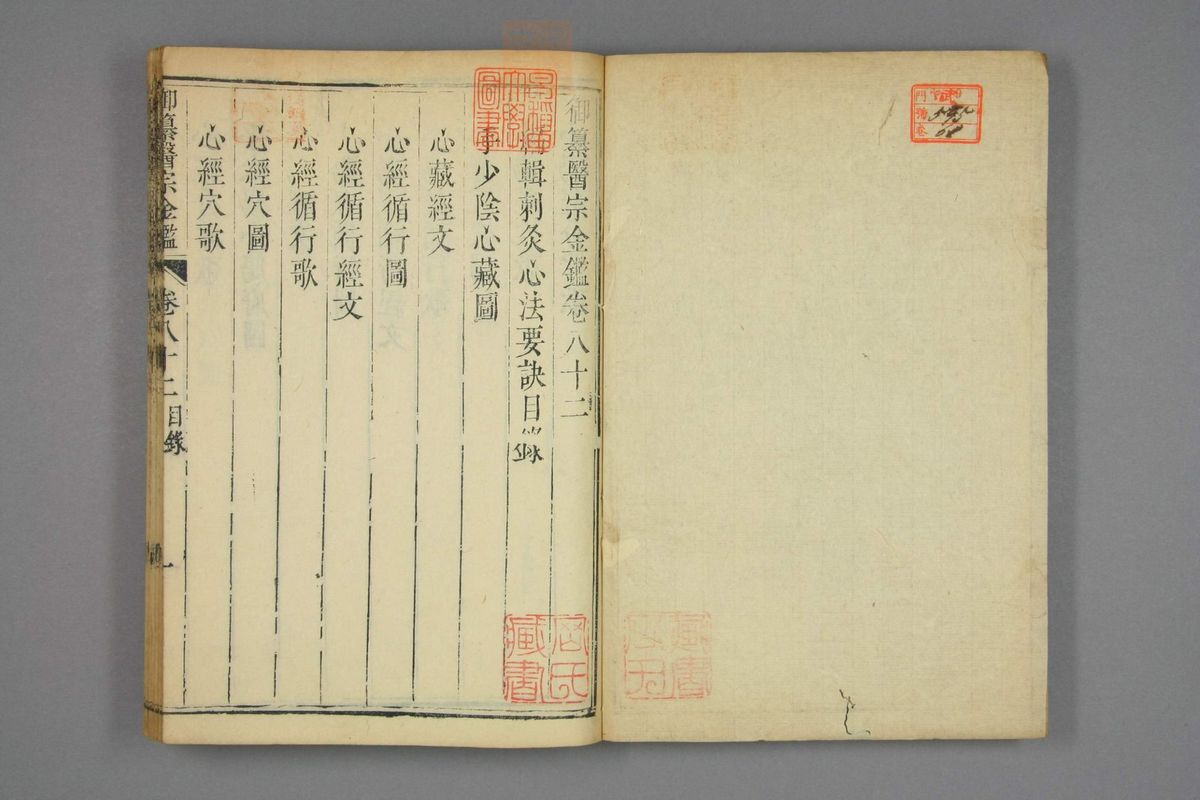 御纂醫宗金鑑卷八十二
輯刺灸心法要訣目錄
手少陰心藏圖
心藏經文
心經循行圖
心經循行經文
心經循行歌
心經穴圖
心經穴歌
御纂醫宗金鑑 卷八十二 目錄 一
圖書
藏書